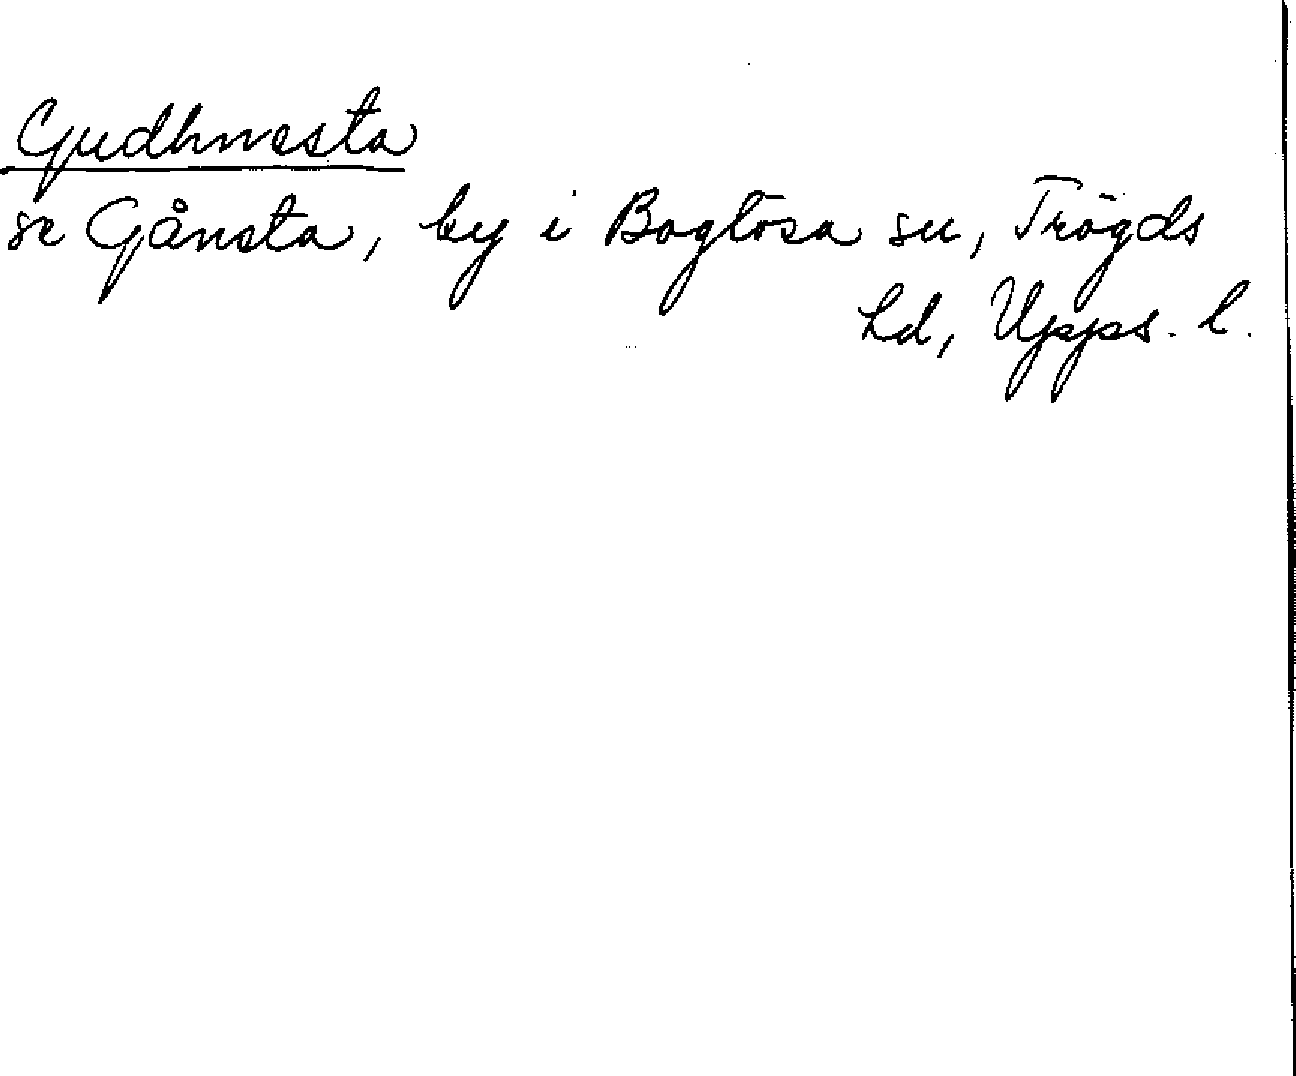 Gudhnesta
se Gånsta, by i Boglösa sn, Trögds
hd, Upps. l.